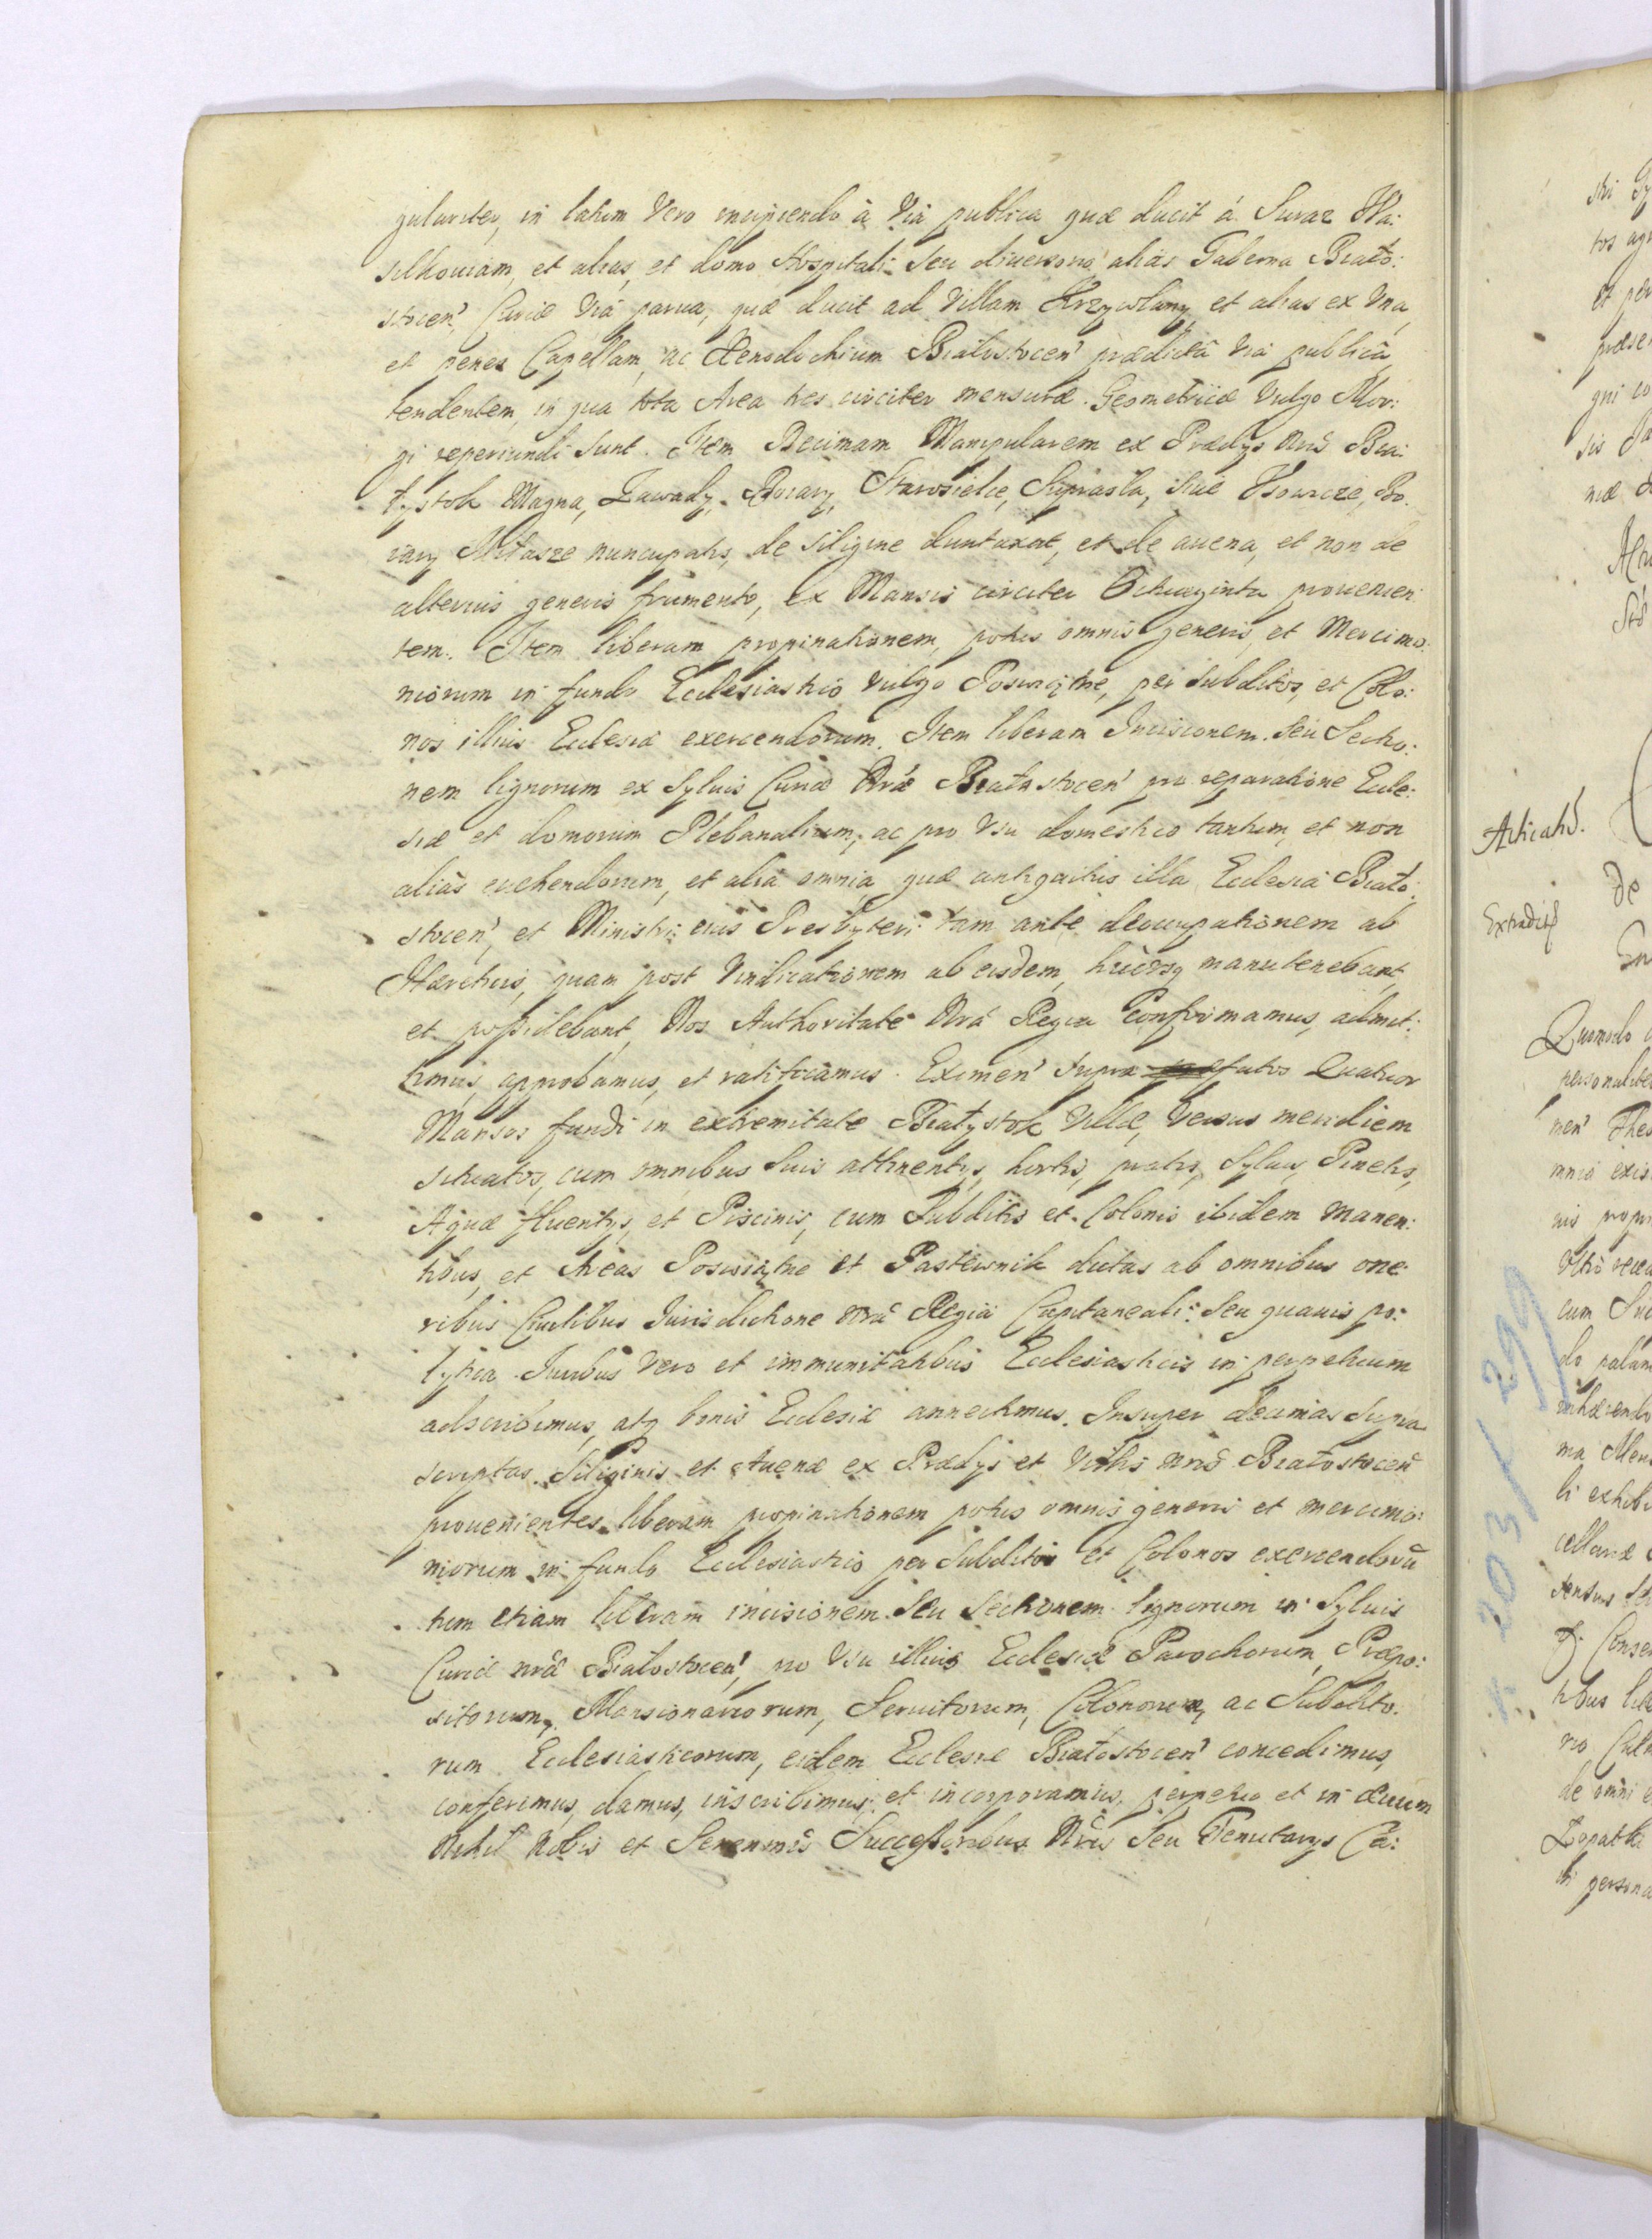 gulariter, in latum Vero incipiendo à Via publica quæ ducit á Suraz Wa:
silkoviam, et alias, et domo Hospitali Seu diuersorio alias Taberna Biało:
stocen̄, Curiæ Viâ parua, quæ ducit ad Villam Krzywlany et alias ex Vna,
et penes Capellam, ac Xenodochium Białostocen̄ prædictâ via publicâ
tendentem, in qua tota Area tres circiter mensuræ Geometricæ Vulgo Mor:
gi reperiundi Sunt. Item Decimam Manipularem ex Prædys Nrīs Bia:
łystok Magna, Zawady, Boiary, Starosielce, Suprasla, siue Usowicze, Bo:
iary Mitasze nuncupatis, de Siligine duntaxat, et de auena, et non de
alterius generis frumento, ex Mansis circiter Octuaginta prouenien:
tem. Item liberam propinationem, potus omnis generis, et Mercimo:
niorum in fundo Ecclesiastico vulgo Poswiątne, per Subditos, et Colo:
nos illius Ecclesiæ exercendorum. Item liberam Incisionem Seu Sectio:
nem lignorum ex Syluis Curiæ Nræ Białostocen̄ pro reparatione Eccle:
siæ et domorum Plebanalium, ac pro Vsu domestico tantum, et non
aliàs euehendorum, et alia omnia quæ antiquitus illa Ecclesia Biało:
stocen̄, et Ministri eius Presbyteri tam ante deoccupationem ab
Hæreticis, quam post Vindicationem ab eisdem, hucusq manutenebant,
et possidebant, Nos Authoritate Nrâ Regia Confirmamus, admit:
timus, approbamus, et ratificamus. Eximen̄ supra fatos Quatuor
Mansos fundi in extremitate Białystok Villæ, Versus meridiem
situatos, cum omnibus Suis attinentys, hortis, pratis, Syluis, Pinetis,
Aquæ fluentys, et Piscinis, cum Subditis et Colonis ibidem manen:
tibus, et Areas Poswiątne et Pasternik dictas ab omnibus one
ribus Ciuilibus Jurisdictione nrâ Regia Capitaneali: Seu quauis po:
lytica. Juribus Vero et immunitatibus Ecclesiasticis in perpetuum
adscribimus, atq bonis Ecclesiæ annectimus. Insuper decimas Supra
scriptas Siliginis et Auenæ ex Prædys et Villis nrīs Białostocen̄
prouenientes liberam propinationem potus omnis generis et mercimo:
niorum in fundo Ecclesiastico per Subditos et Colonos exercendorū
tum etiam liberam incisionem Seu Sectionem lignorum in Syluis
Curiæ nræ Białostocen̄, pro Vsu illius Ecclesiæ Parochorum, Præpo:
sitorum, Mansionariorum, Seruitorum, Colonorum, ac Subdito:
rum Ecclesiasticorum, eidem Ecclesiæ Białostocen̄ concedimus,
conferimus, damus, inscribimus, et incorporamus perpetuo et in æuum
Nihil Nobis et Serenmīs Successoribus Nrīs Seu Tenutarys Ca:
Acticatio.
Extradit
Quomodo
Lopatki